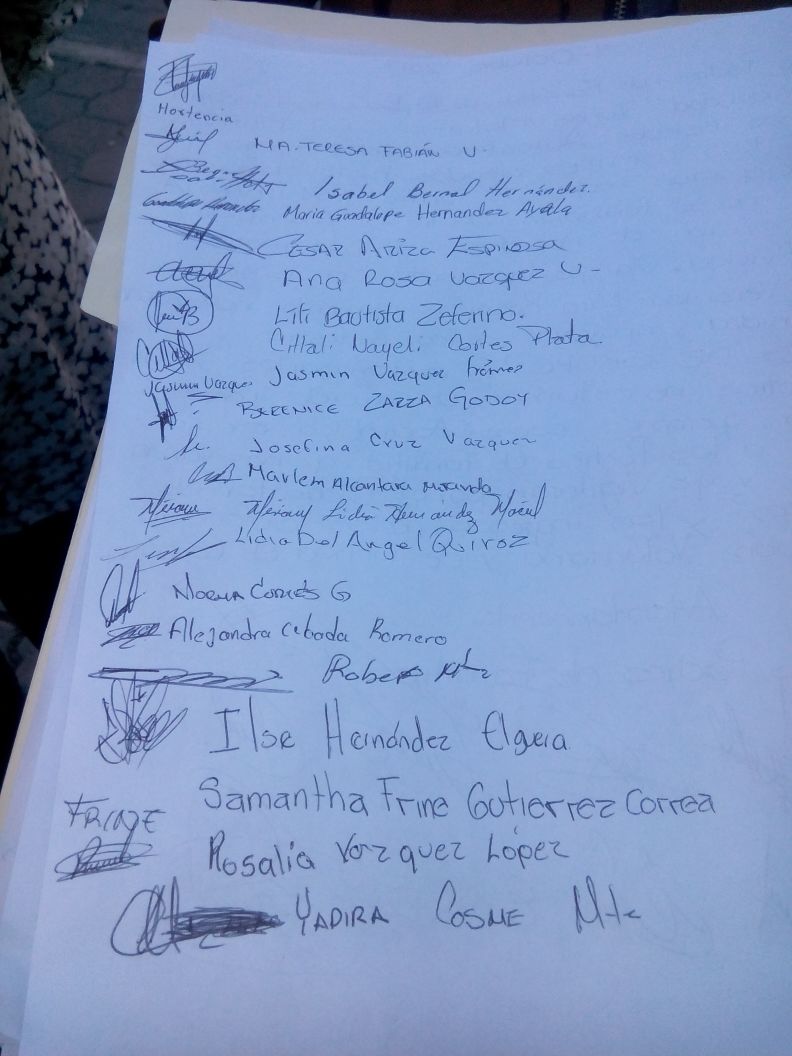 Hortencia
MA. TERESA FABIÁN V.
Isabel Bernal Hernández.
Maria Guadalupe Hernandez Ayala
CESAR ARIZA ESPINOSA
Ana Rosa Vazquez V-
Liti Bautista Zeferino.
Citlali Nayeli Cortes Plata.
Jasmin Vazquez
Jasmin Vazquez
BERENICE ZARZA GODOY
Josefina Cruz Vazquez
Marlem Alcantara Miranda
Lidia Hernández
Lidia Del Angel Quiroz
NORMA CORTÉS G
Alejandra Cebada Romero
Ilse Hernández Elguera
FRINE Samantha Frine Gutierrez Correa
Rosalia Vazquez López
YADIRA COSME